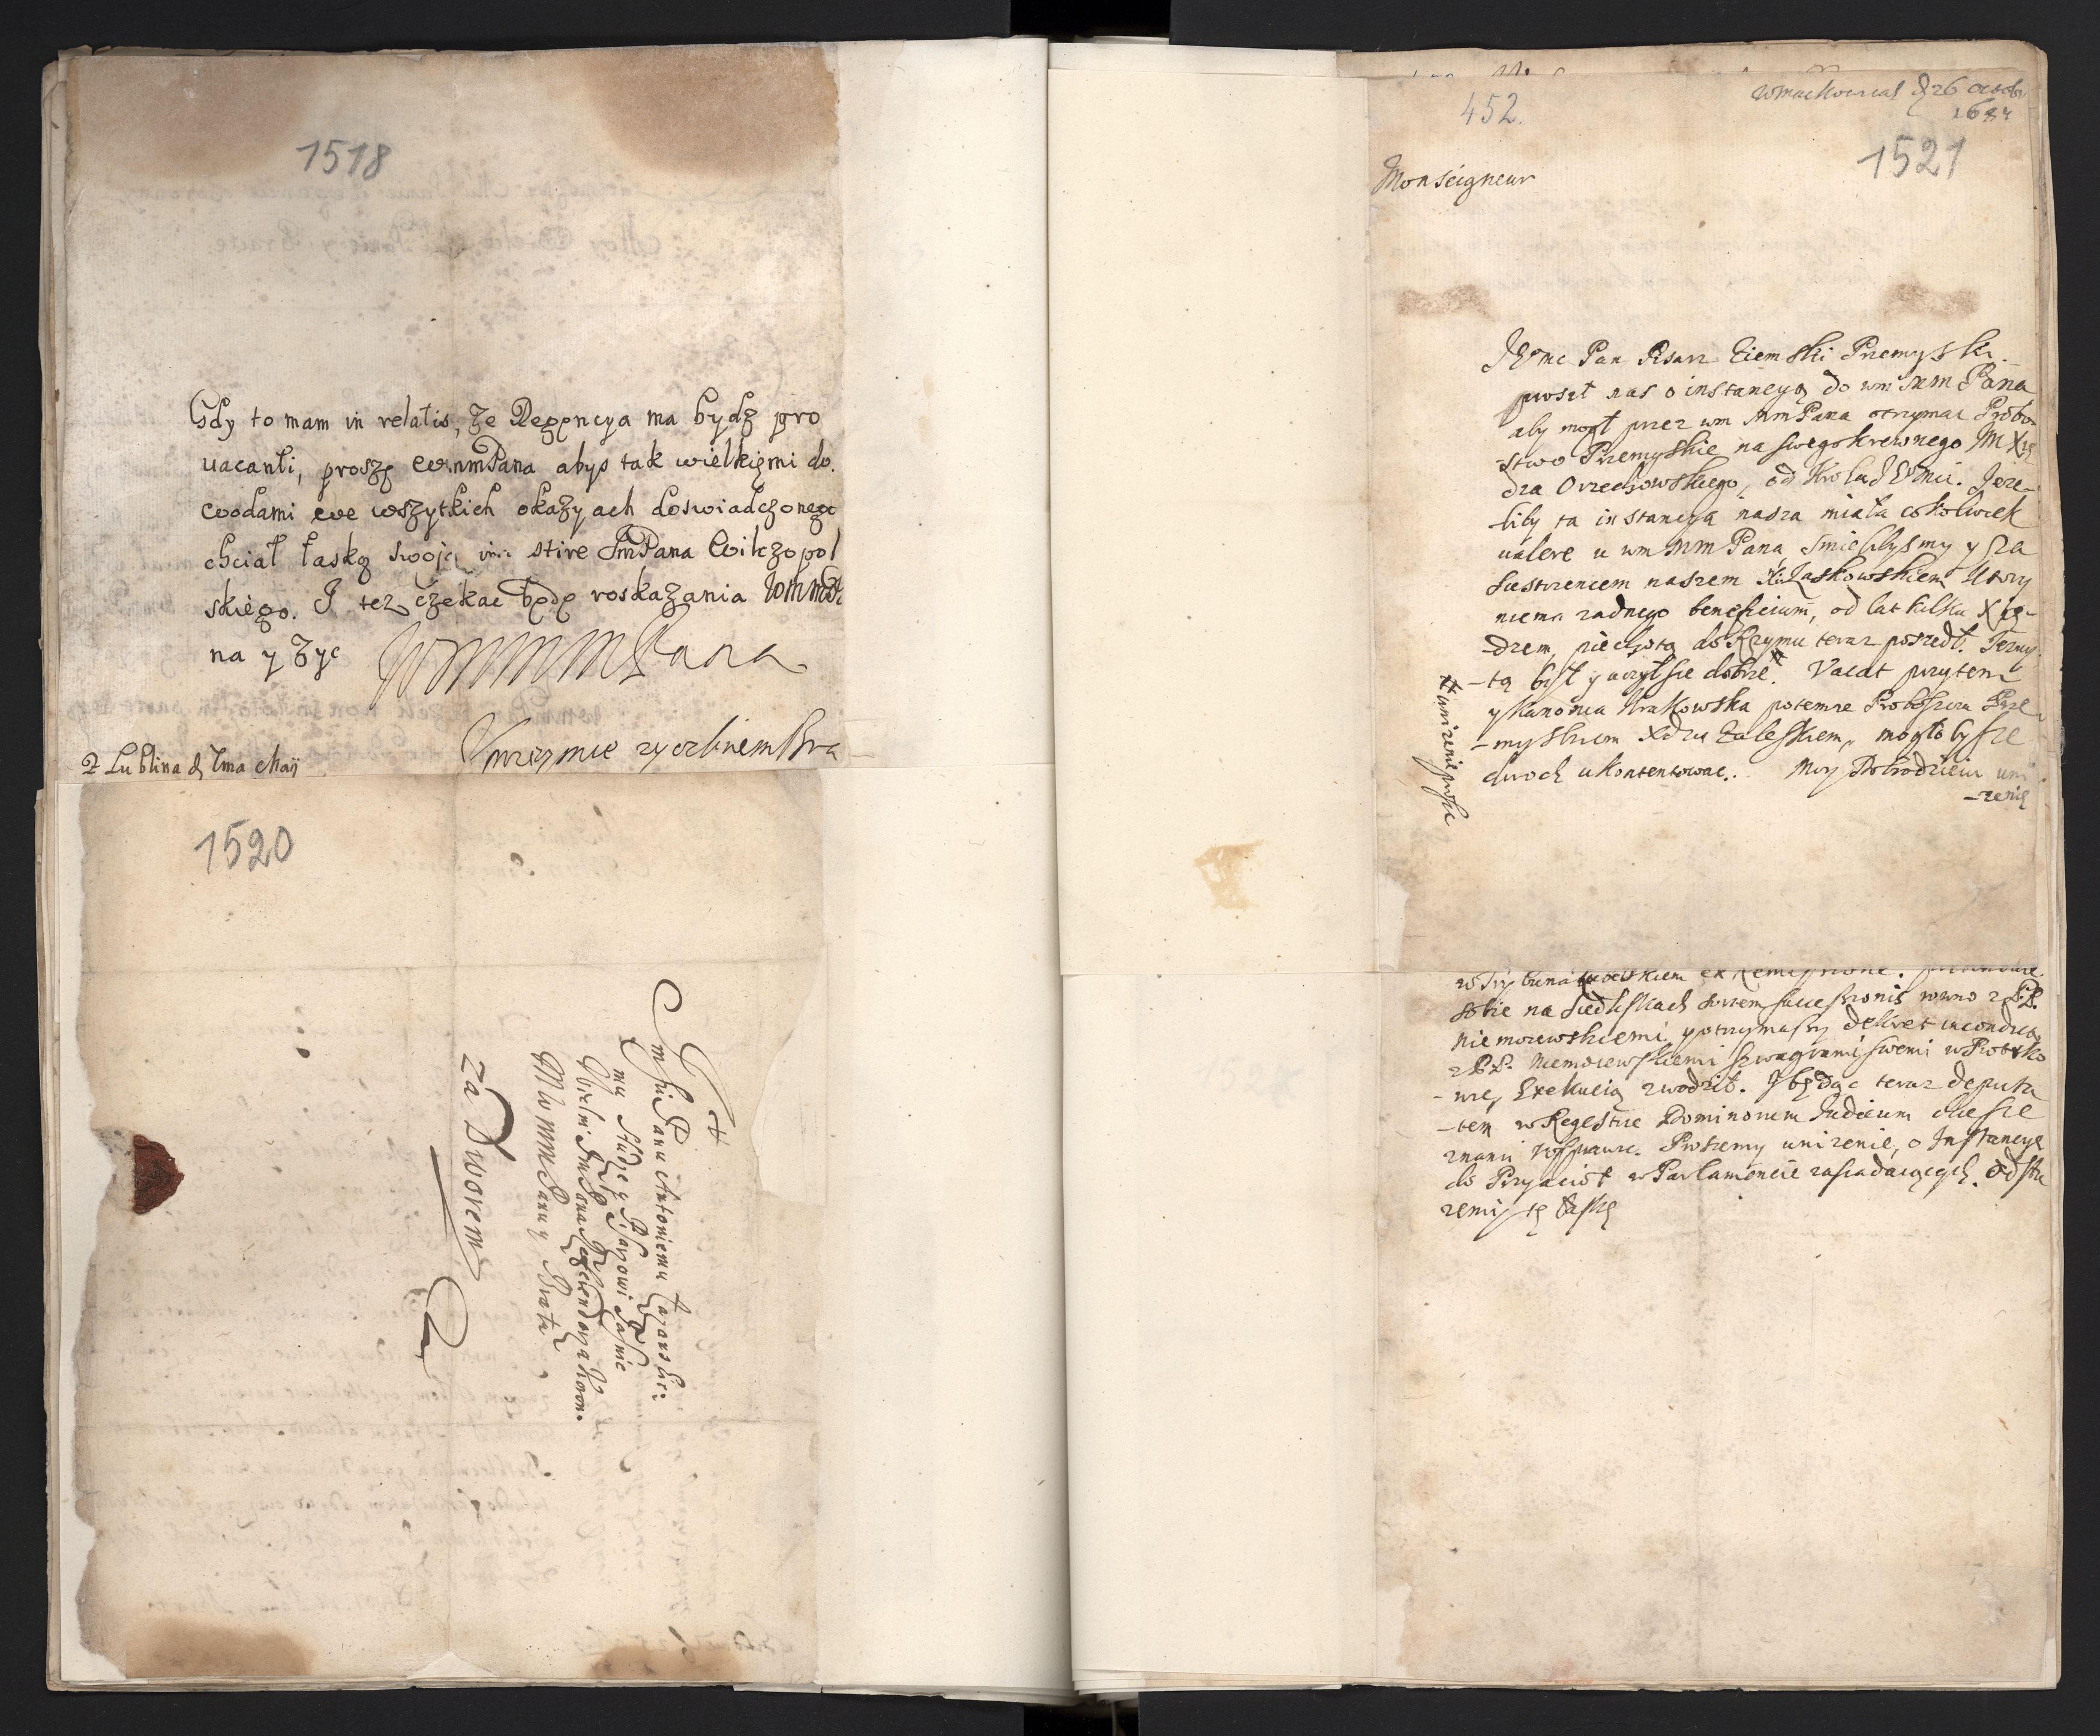 1518
Gdy to mam in relatis, że Regencya ma bydz pro
uacanti, proszę WmmPana abyś tak wielkiemi do.
wodami we wszytkich okazyach doswiadczonego
chciał łaskę swoję stire JmPana Wilczopol
skiego. I tez czekac będę roskazania
na y życ
WmmmPana
Vprzeymie zyczliwem Bra
Z Lublina d 7ma Maij
1520
JmPanu Antoniemu
my Słudze y Pisarowi Jasnie
Wielm: JmPana Referendarza Koron.
Mmm Panu y Bratu
Za Dworem
452.
d 26 Octobr
1684
1521
Monseigneur
JEomc Pan Pisarz Ziemski Przemyski
prosił nas o instancyą do wm mm Pana
aby mogł przez wm Mm Pana otrzymac Probo
stwo Przemyskie na swego krewnego JM Xię
dza Orzechowskiego, od Krola JEomci. Jeze-
-liby ta instancya nasza miała cokolwiek
ualere u wm mm Pana, smielibysmy y za
siestrzencem naszem Xi Laskowskiem ktory
niema zadnego beneficium, od lat kilku Xię-
-dzem, piechotą do Rzymu teraz poszedł. Jezuy
-tą był y uczył sie dobrze. Vacat przytem
y Kanonia Krakowska potemze Proboszczu Prze
-myskiem Xdzu Zaleskiem, mogłoby sie
dwoch ukontentowac. Moy Dobrodzieiu uni
-zenie
# unizenie proszę
w Trybunale Lubelskiem ex Remissione.
sobie na Siedliskach successionis rowno z P.P.
Niemoiewskiemi, y otrzymaszy dekret
z P.P. Niemoiewskiemi szwagrami swemi w Piotrko
-wie, Exekucią zwodził. J będąc teraz deputa
-tem w Regestrze Dominorum Iudicum chce sie
znami rosprawic. Prosiemy unizenie, o Instancye
do Przyaciół w Parlamencie zasiadaiących. Odsłu
zemy tę łaskę